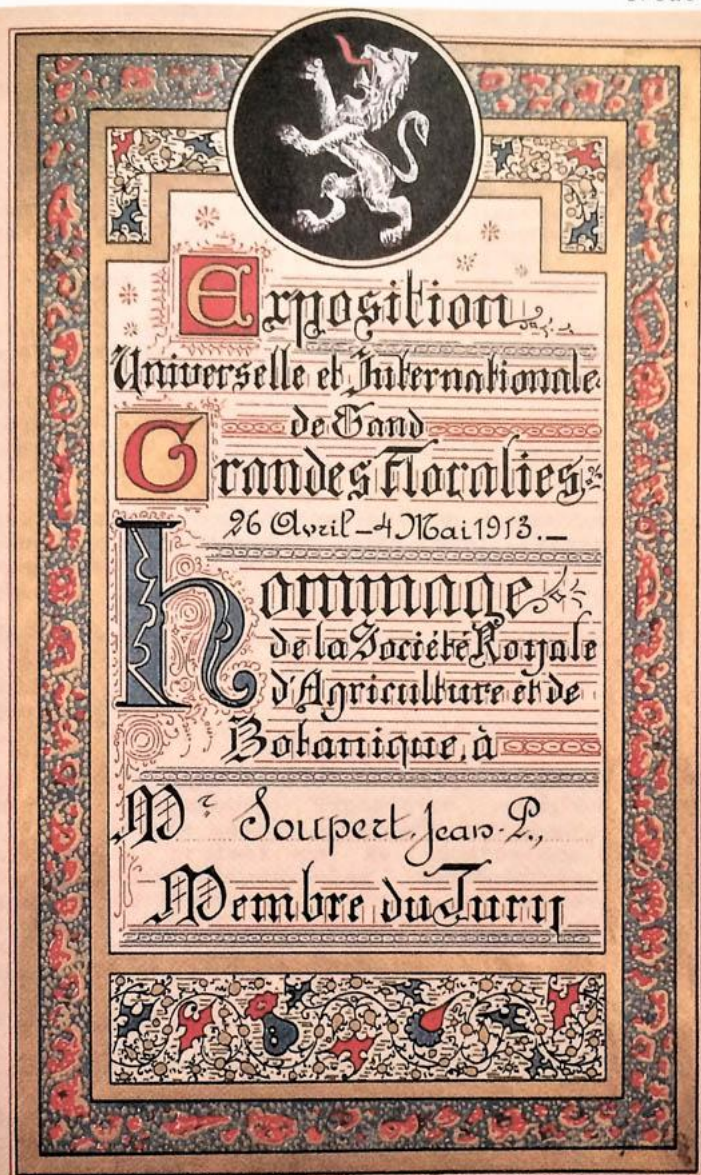 Exposition
Universelle et Internationale
de Gand
Grandes Floralies
26 Avril_4 Mai 1913._
hommage
de la Société Royale
d'Agriculture et de
Botanique, à
Mr Soupert, Jean-P.,
Membre du Jury